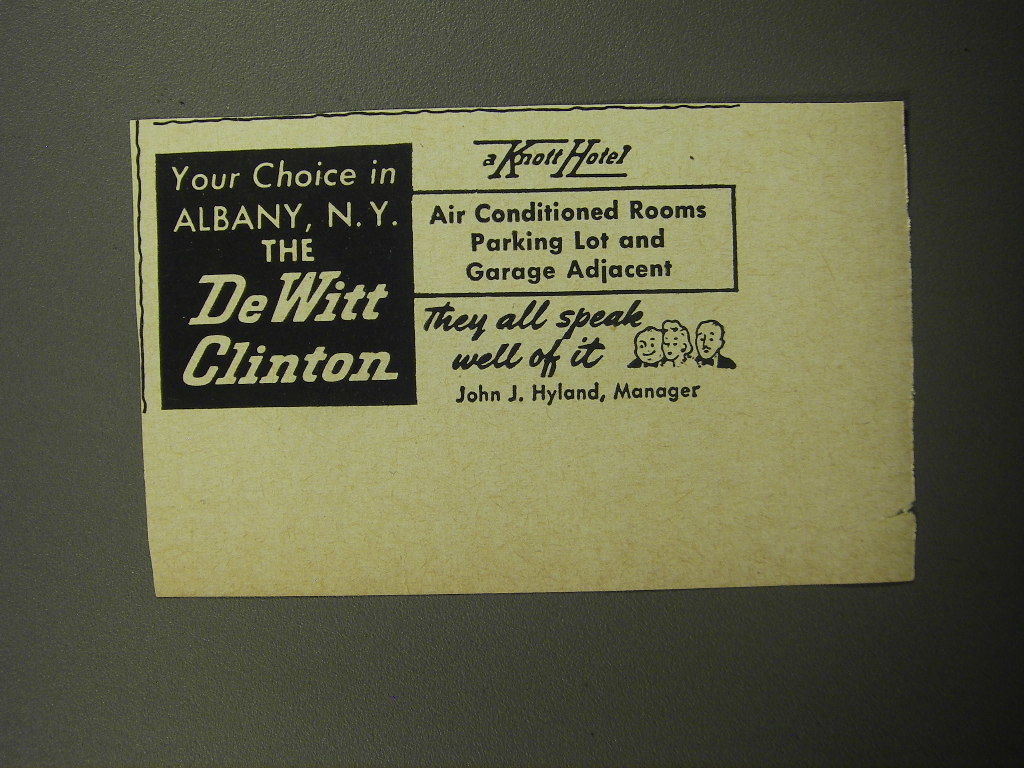 Your Choice in
ALBANY, N.Y.
THE
DeWitt
Clinton
a Knott Hotel
Air Conditioned Rooms
Parking Lot and
Garage Adjacent
They all speak
well of it
John J. Hyland, Manager